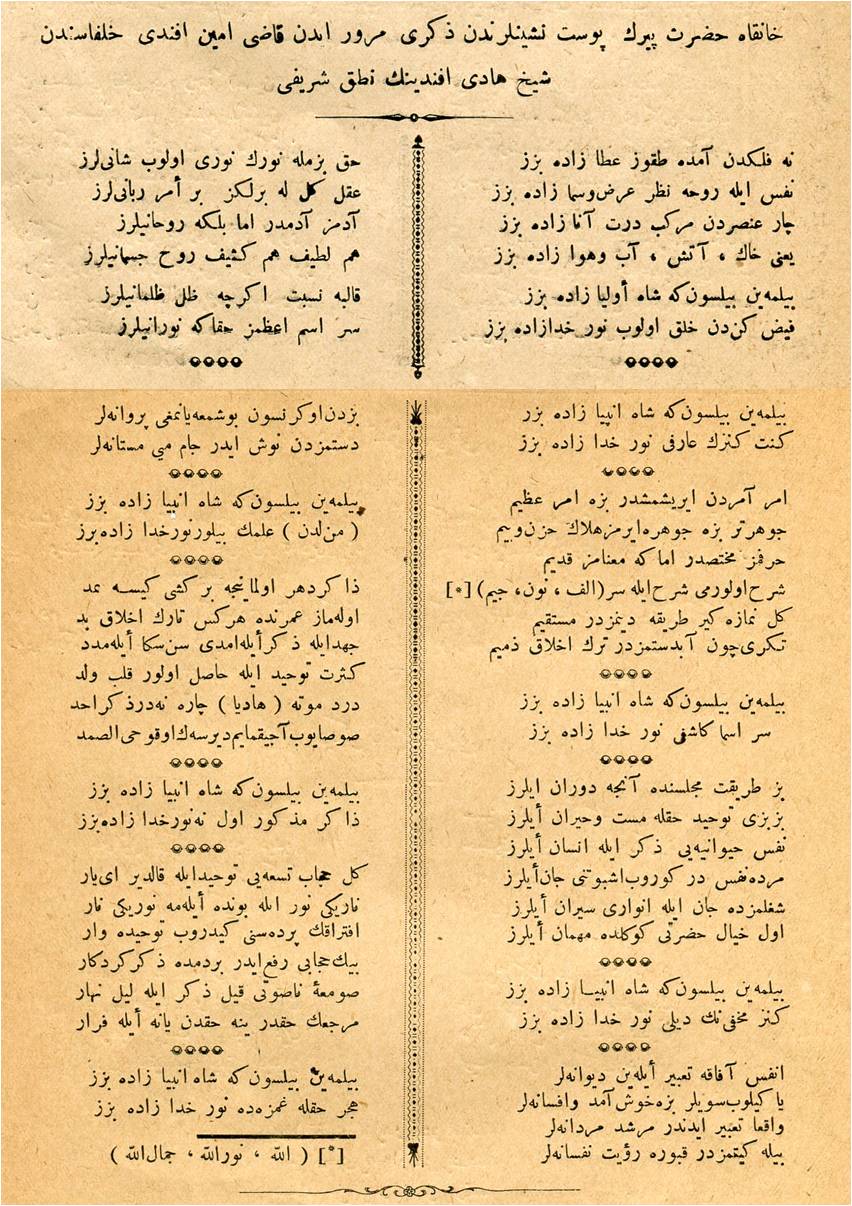 خانقاه حضرت پيرك پوست نشينلرندن ذكرى مرور ايدن قاضى امين افندى خلفاسندن
شيخ هادى افندينك نطق شريفى
نه فلكدن آمده طقوز عطا زاده بزز
نفس ايله روحه نظر عرض وسما زاده بزز
چار عنصردن مركب درت آنا زاده بزز
يعنى خاك ، آتش ، آب وهوا زاده بزز
بيلمه‌ين بيلسون‌كه شاه أوليا زاده بزز
فيض كن‌دن خلق اولوب نور خدازاده بزز
حق بزمله نورك نورى اولوب شانى‌لرز
عقل كل له برلكز بر أمر ربانى‌لرز
آدمز آدمدر اما بلكه روحانيلرز
هم لطيف هم كثيف روح جسمانيلرز
قالبه نسبت اكرچه ظل ظلمانيلرز
سر اسم اعظمز حقاكه نورانيلرز
بيلمه‌ين بيلسون‌كه شاه انبيا زاده بزز
كنت كنزك عارفى نور خدا زاده بزز
امر آمردن ايريشمشدر بزه امر عظيم
جوهرتر بزه جوهره‌ايرمزهلاك حزن‌وبيم
حرفمز مختصدر اماكه معنامز قديم
شرح اولورمى شرح‌ايله سر(الف ، نون، جيم) [*]
كل نمازه كير طريقه دينمزدر مستقيم
تكرى‌چون آبدستمزدر ترك اخلاق ذميم
بيلمه‌ين بيلسون‌كه شاه انبيا زاده بزز
سر اسما كاشفى نور خدا زاده بزز
بز طريقت مجلسنده آنجه دوران ايلرز
بزبزى توحيد حقله مست وحيران أيلرز
نفس حيوانيه‌يى ذكر ايله انسان أيلرز
مرده‌نفس در كوروب‌اشبوتنى جان‌أيلرز
شغلمزده جان ايله انوارى سيران أيلرز
اول خيال حضرتى كوكلده مهمان أيلرز
بيلمه‌ين بيلسون‌كه شاه انبيا زاده بزز
كنز مخفى‌نك ديلى نور خدا زاده بزز
انفس آفاقه تعبير أيله‌ين ديوانه‌لر
ياكيلوب‌سويلر بزه‌خوش‌آمد وافسانه‌لر
واقعا تعبير ايدندر مرشد مردانه‌لر
بيله كيتمزدر قبوره رؤيت نفسانه‌لر
بزدن‌اوكرنسون بوشمعه‌يانمغى پروانه‌لر
دستمزدن نوش ايدر جام مى مستانه‌لر
بيلمه‌ين بيلسون‌كه شاه انبيا زاده بزز
( من‌لدن ) علمك بيلورنورخدا زاده‌بزز
ذاكردهر اولماينجه بركشى كيسه نمد
اوله‌ماز عمرنده هركس تارك اخلاق بد
جهدايله ذكرأيله‌امدى سن‌سكا أيله‌مدد
كثرت توحيد ايله حاصل اولور قلب ولد
درد موته ( هاديا ) چاره نه‌درذكراحد
صوصايوب‌آجيقمايم‌ديرسه‌ك‌اوقوحى‌الصمد
بيلمه‌ين بيلسون‌كه شاه انبيا زاده بزز
ذاكر مذكور اول نه‌نورخدا زاده‌بزز
كل حجاب تسعه‌يى توحيدايله قالدير اى‌يار
ناريكى نور ايله بونده أيله‌مه نوريكى نار
افتراقك پرده‌سنى كيدروب توحيده وار
بيك‌حجابى رفع‌ايدر بردمده ذكركردكار
صومعۀ ناصوتى قيل ذكر ايله ليل نهار
مرجعك حقدر ينه حقدن يانه أيله فرار
بيلمه‌ين بيلسون كه شاه انبيا زاده بزز
هجر حقله غمزه‌ده نور خدا زاده بزز
[*] ( الله ، نورالله ، جمال‌الله )